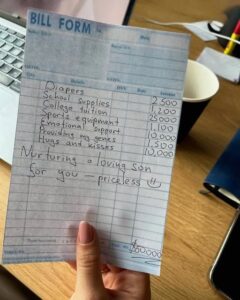 BILL FORM
Diapers 2 500
School supplies 1 200
College tuition 25 000
Sports equipment 1,100
Emotional support 10 000
Providing my genes 1 500
Hugs and kisses 10,000
Nurturing a loving son
for you — priceless
$50000